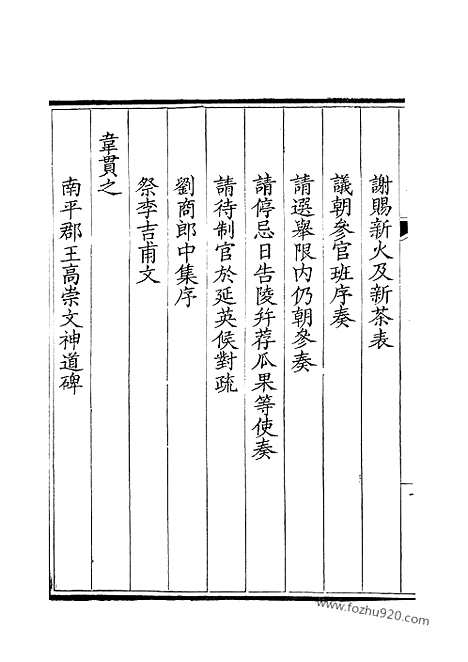 謝賜新火及新茶表
議朝參官班序奏
請選舉限內仍朝參奏
請停忌日告陵幷荐瓜果等使奏
請待制官於延英候對疏
劉商郎中集序
祭李吉甫文
韋貫之
南平郡王高崇文神道碑
www.fozhu920.com